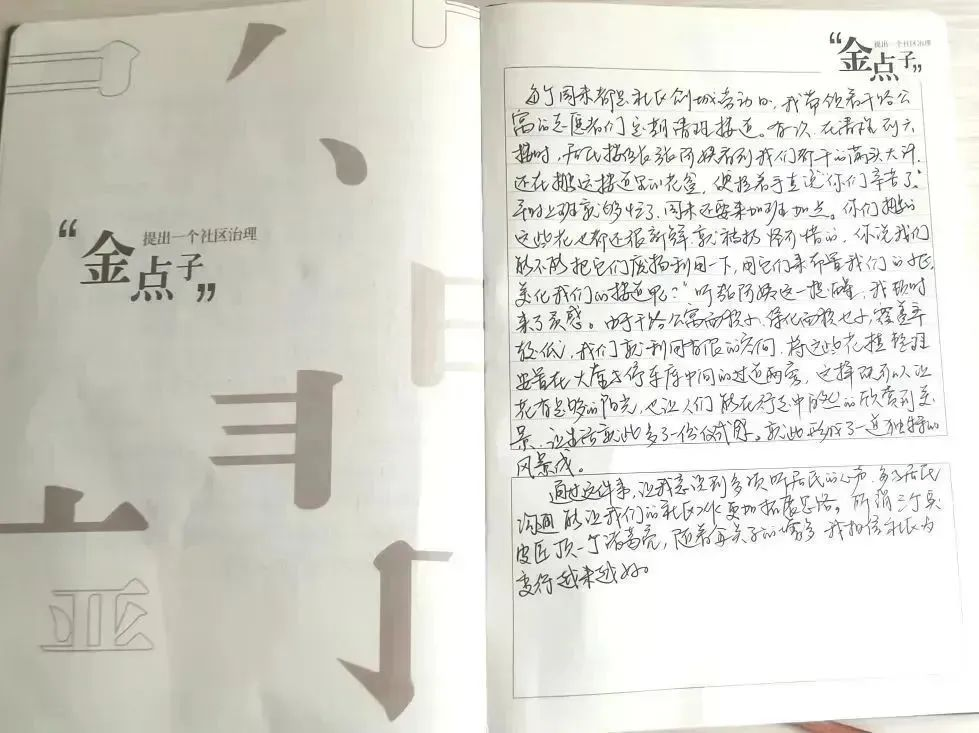 “金点子”
提出一个社区治理
“金点子”
提出一个社区治理
每个周末都是社区创城劳动日，我带领着干路公
寓的志愿者们定期清理楼道。有次在清理到六
楼时，居民楼组长张阿姨看到我们所干的满头大汗，
还在搬运楼道里的花盆，便招着手直说“你们辛苦了。
平时上班就够忙了，周末还要来加班加点。你们搬的
这些花也都还很新鲜，就被扔怪可惜的，你说我们
能不能把它们废物利用一下，用它们来布置我们的小区
美化我们的楼道呢？”听张阿姨这一提醒，我顿时
来了灵感。由于干路公寓面积小，绿化面积也少，覆盖率
较低，我们就利用有限的空间，将这些花植整理
安置在大厅与停车库中间的过道两旁，这样既可以让
花有足够的阳光，也让人们能在行走中的欣赏到美
景，让生活就此多了一份仪式感。就此形成了一道独特的
风景线。
通过这件事，让我意识到多倾听居民的心声，多与居民
沟通能让我们的社区文化更加拓展思路，所谓三个臭
皮匠顶一个诸葛亮，随着金点子的增多，我相信社区
变得越来越好。